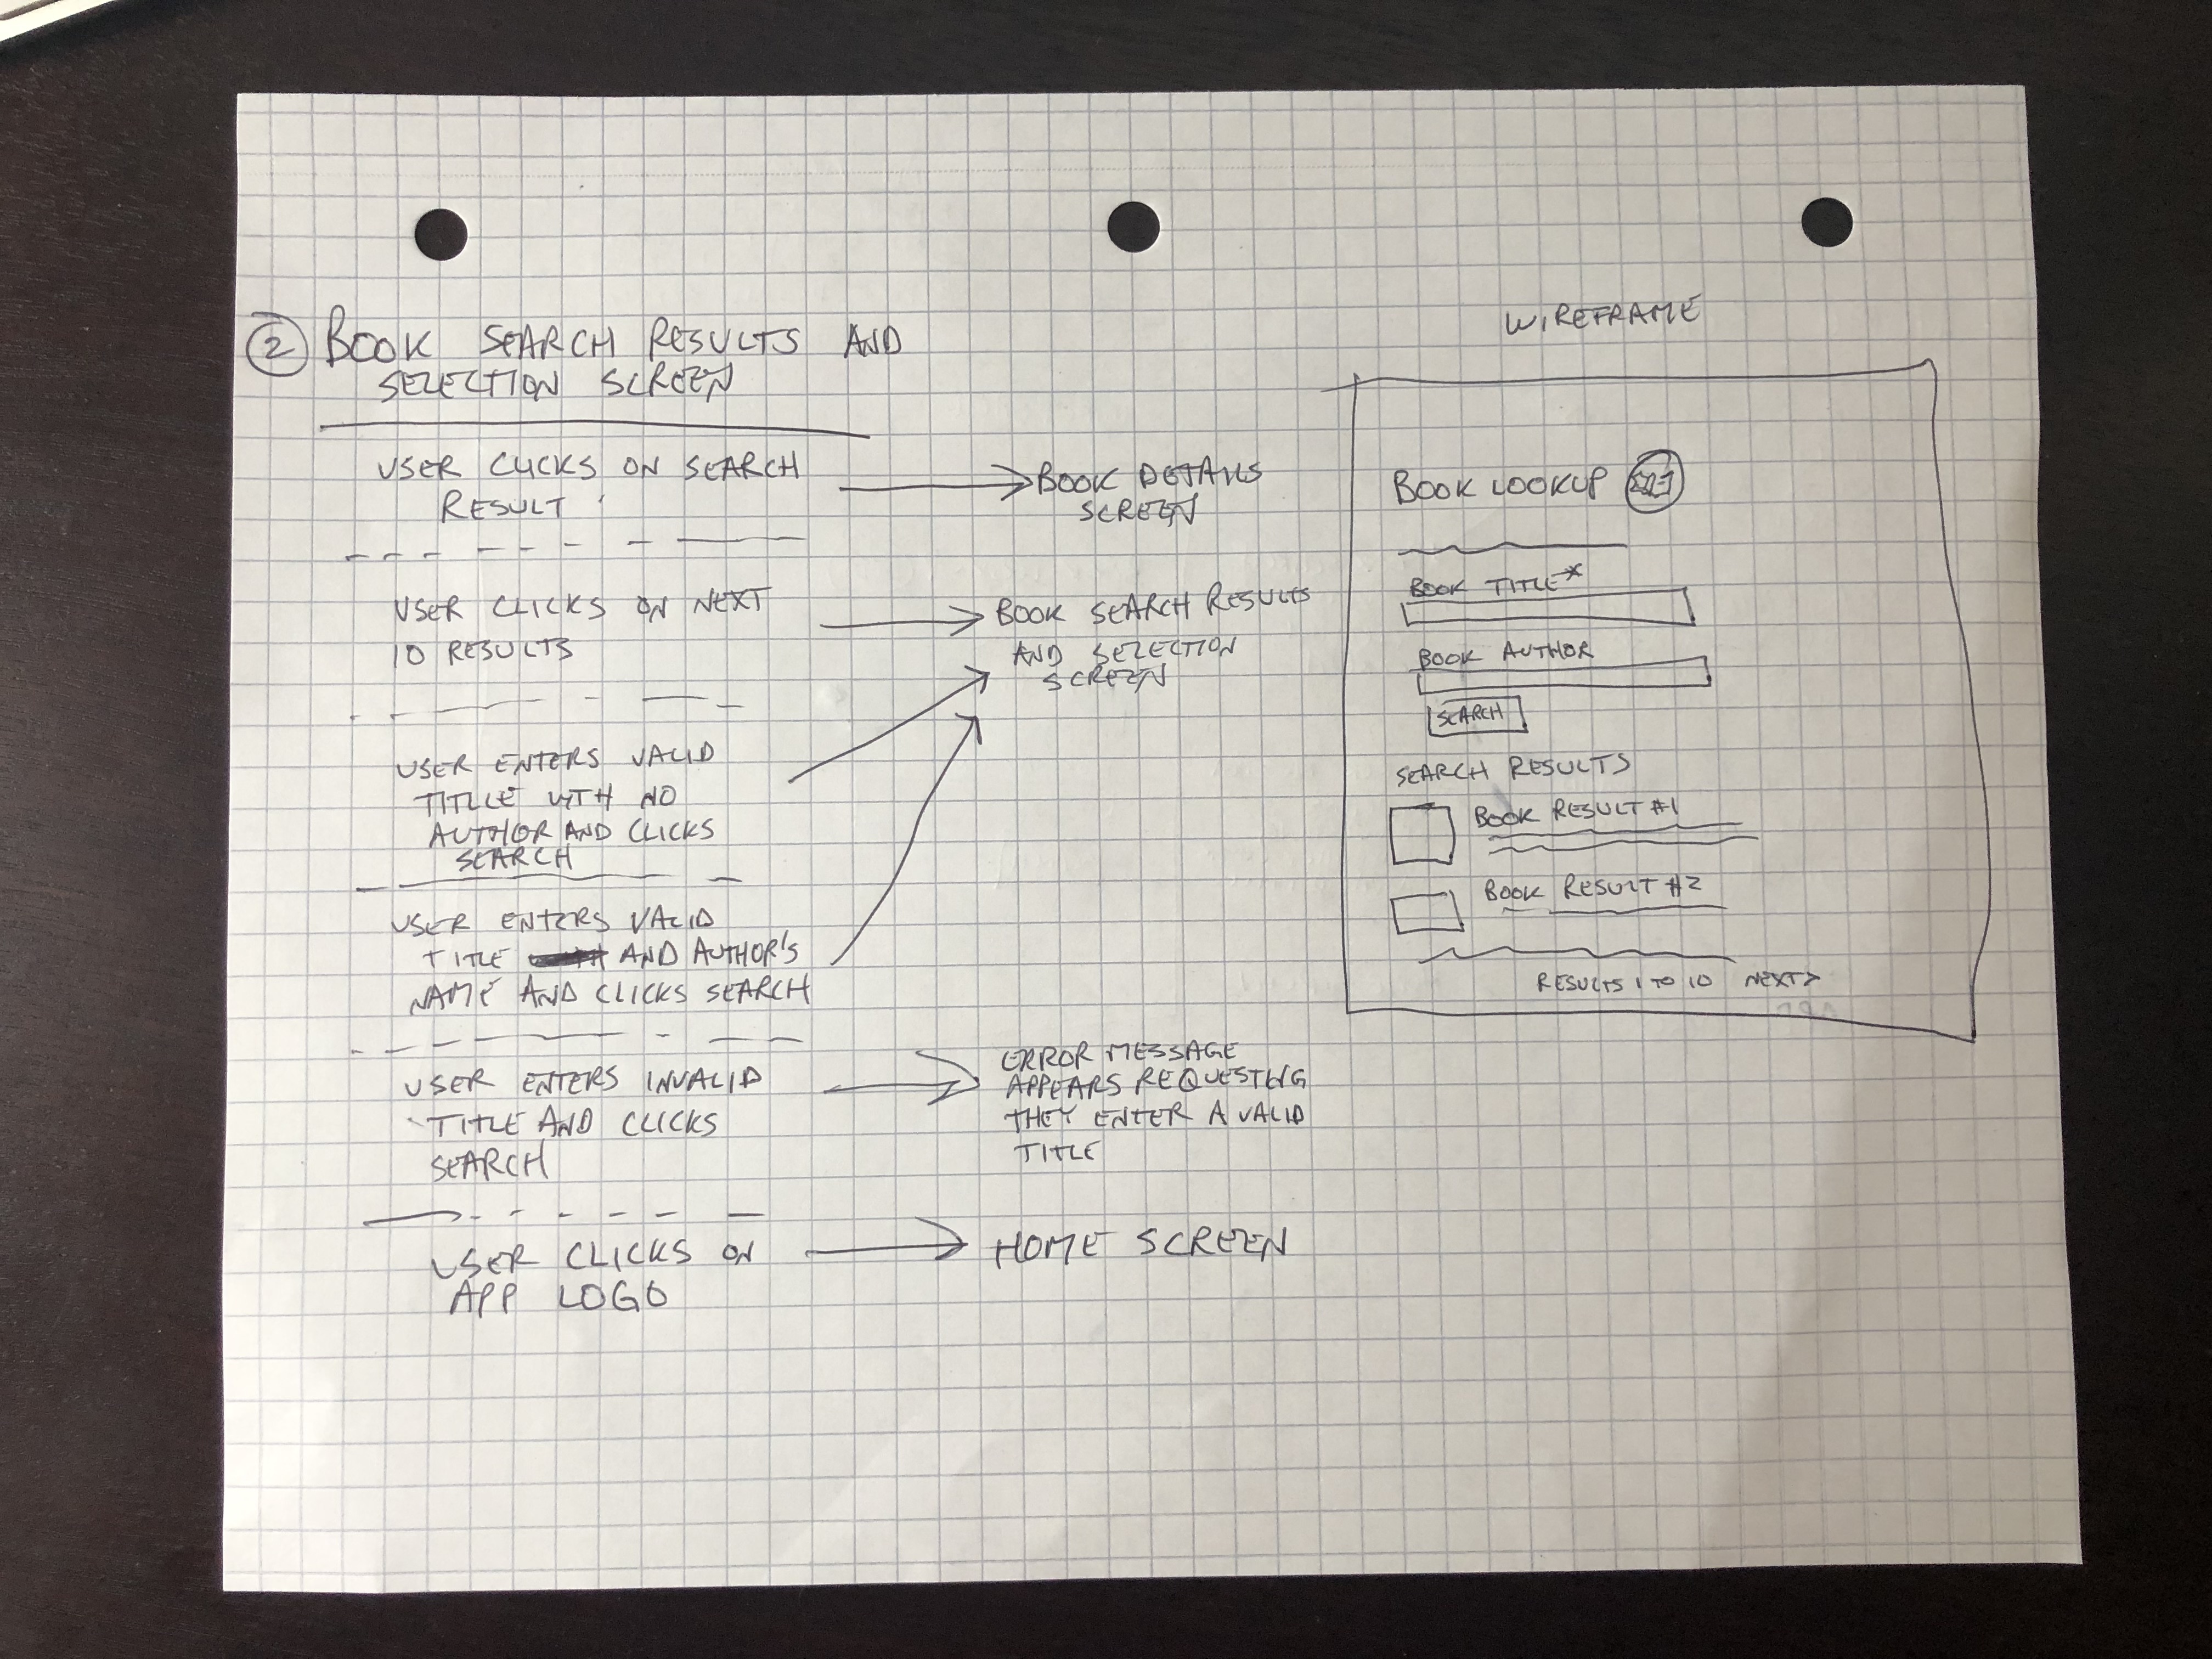 2 BOOK SEARCH RESULTS AND
SELECTION SCREEN
USER CLICKS ON SEARCH
RESULT
BOOK DETAILS
SCREEN
USER CLICKS ON NEXT
10 RESULTS
BOOK SEARCH RESULTS
AND SELECTION
SCREEN
USER ENTERS VALID
TITLLE WITH NO
AUTHOR AND CLICKS
SEARCH
USER ENTERS VALID
TITLE AND AUTHOR'S
NAME AND CLICKS SEARCH
USER ENTERS INVALID
TITLE AND CLICKS
SEARCH
ERROR MESSAGE
APPEARS REQUESTING
THEY ENTER A VALID
TITLE
USER CLICKS ON
APP LOGO
HOME SCREEN
WIREFRAME
BOOK LOOKUP
BOOK TITLE*
BOOK AUTHOR
SEARCH
SEARCH RESULTS
BOOK RESULT #1
BOOK RESULT #2
RESULTS 1 TO 10 NEXT>